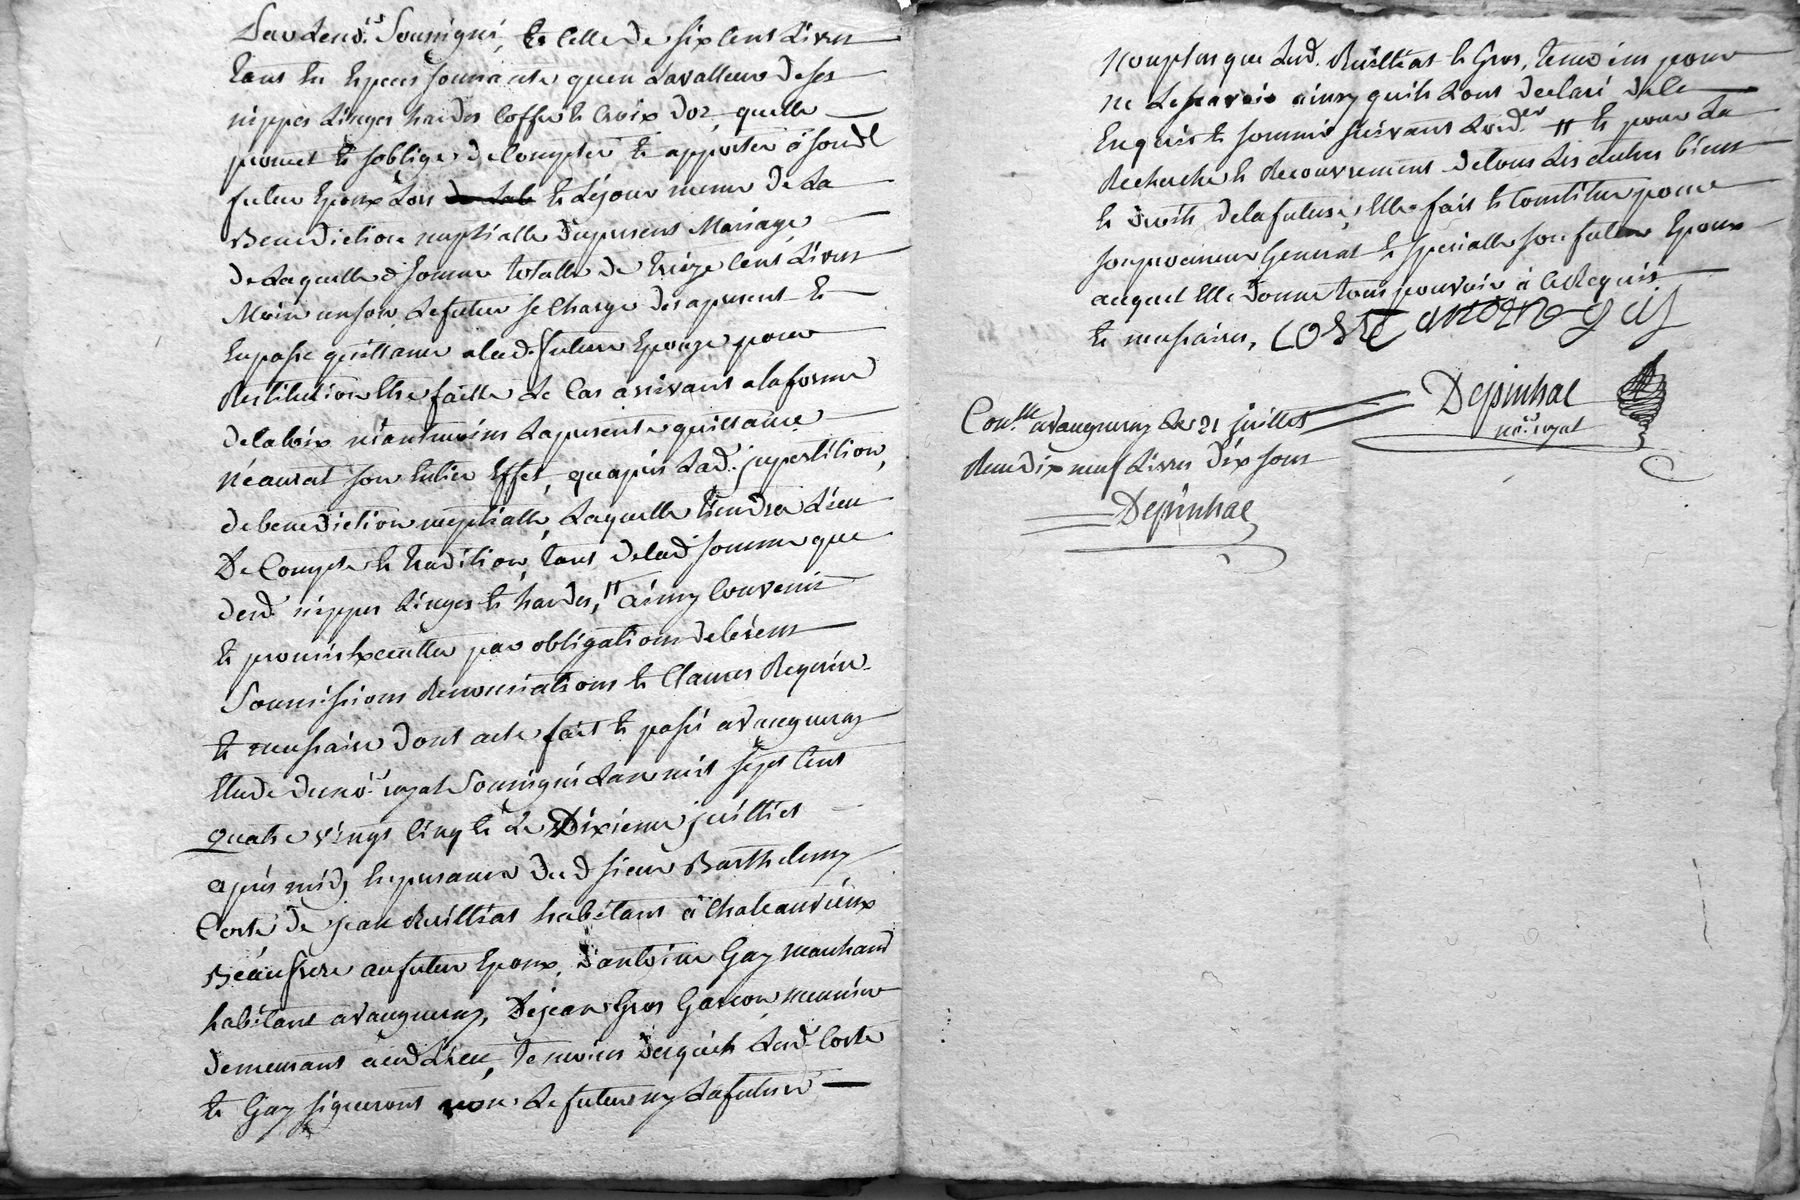 Soussigné, & celle de six cent Livres
tant en Especes sonnante qu'en Lavalleur de ses
nippes Linges hardes Coffre & Croix d'or, quelle
promet & soblige de Compter & apporter á sond.
futur Epoux Lors & Léjour meme de La
Benediction nuptialle du present Mariage
de Laquelle somme totalle de treize Cent Livres
le futur se Charge des apresent &
En passe quittance alad. future Epouze pour
Restitution Etre faitte Le Cas arrivant alaforme
delaloix néantmoins Lapresente quittance
n'éaurat son Entier Effet, quapres Lad.
debenediction nuptialle, Laquelle tiendra Lieu
De Compte & tradition, tant delad. somme que
desd. nippes Linges & hardes, " ainsy Convenu
& promis Executter par obligations debiens
Soumissions Renonciations & Clauses Requises
& necessaire dont acte fait & passé avaugneray
Etude du no.re royal Soussigné Lan mil sept Cent
quatre vingt Cinq & Le Dixieme juilliet
apres midy En presance dud. sieur Barthelemy
Coste de jean Ruilliat habitant á Chateauvieux
Beaufrere au futur Epoux, d'antoine Gay marchand
habitant avaugneray, De jean Gros Garcon meunier
demeurant aud. Lieu, temoins Requis Led. Coste
& Gay signeront non Le futur ny Lafuture
nomplus que Led. Ruilliat & Gros, temoins pour
ne Lesçavoir ainsy quils Lont declaré de Ce
Enquis & sommé suivant Lord.ce " & pour La
Recherche & Recouvrement de tous Les autres biens
& droits delafuture, Elle fait & Constitue pour
sonprocureur General & specialle son futur Epoux
auquel Elle donne tous pouvoir á Ce Requis
& necessaires, COSTE antoine gay
Depinhac
no.re royal
Con.lle avaugneray Le 21 juillet
Reçu dix neuf Livres Dix sous
Depinhac